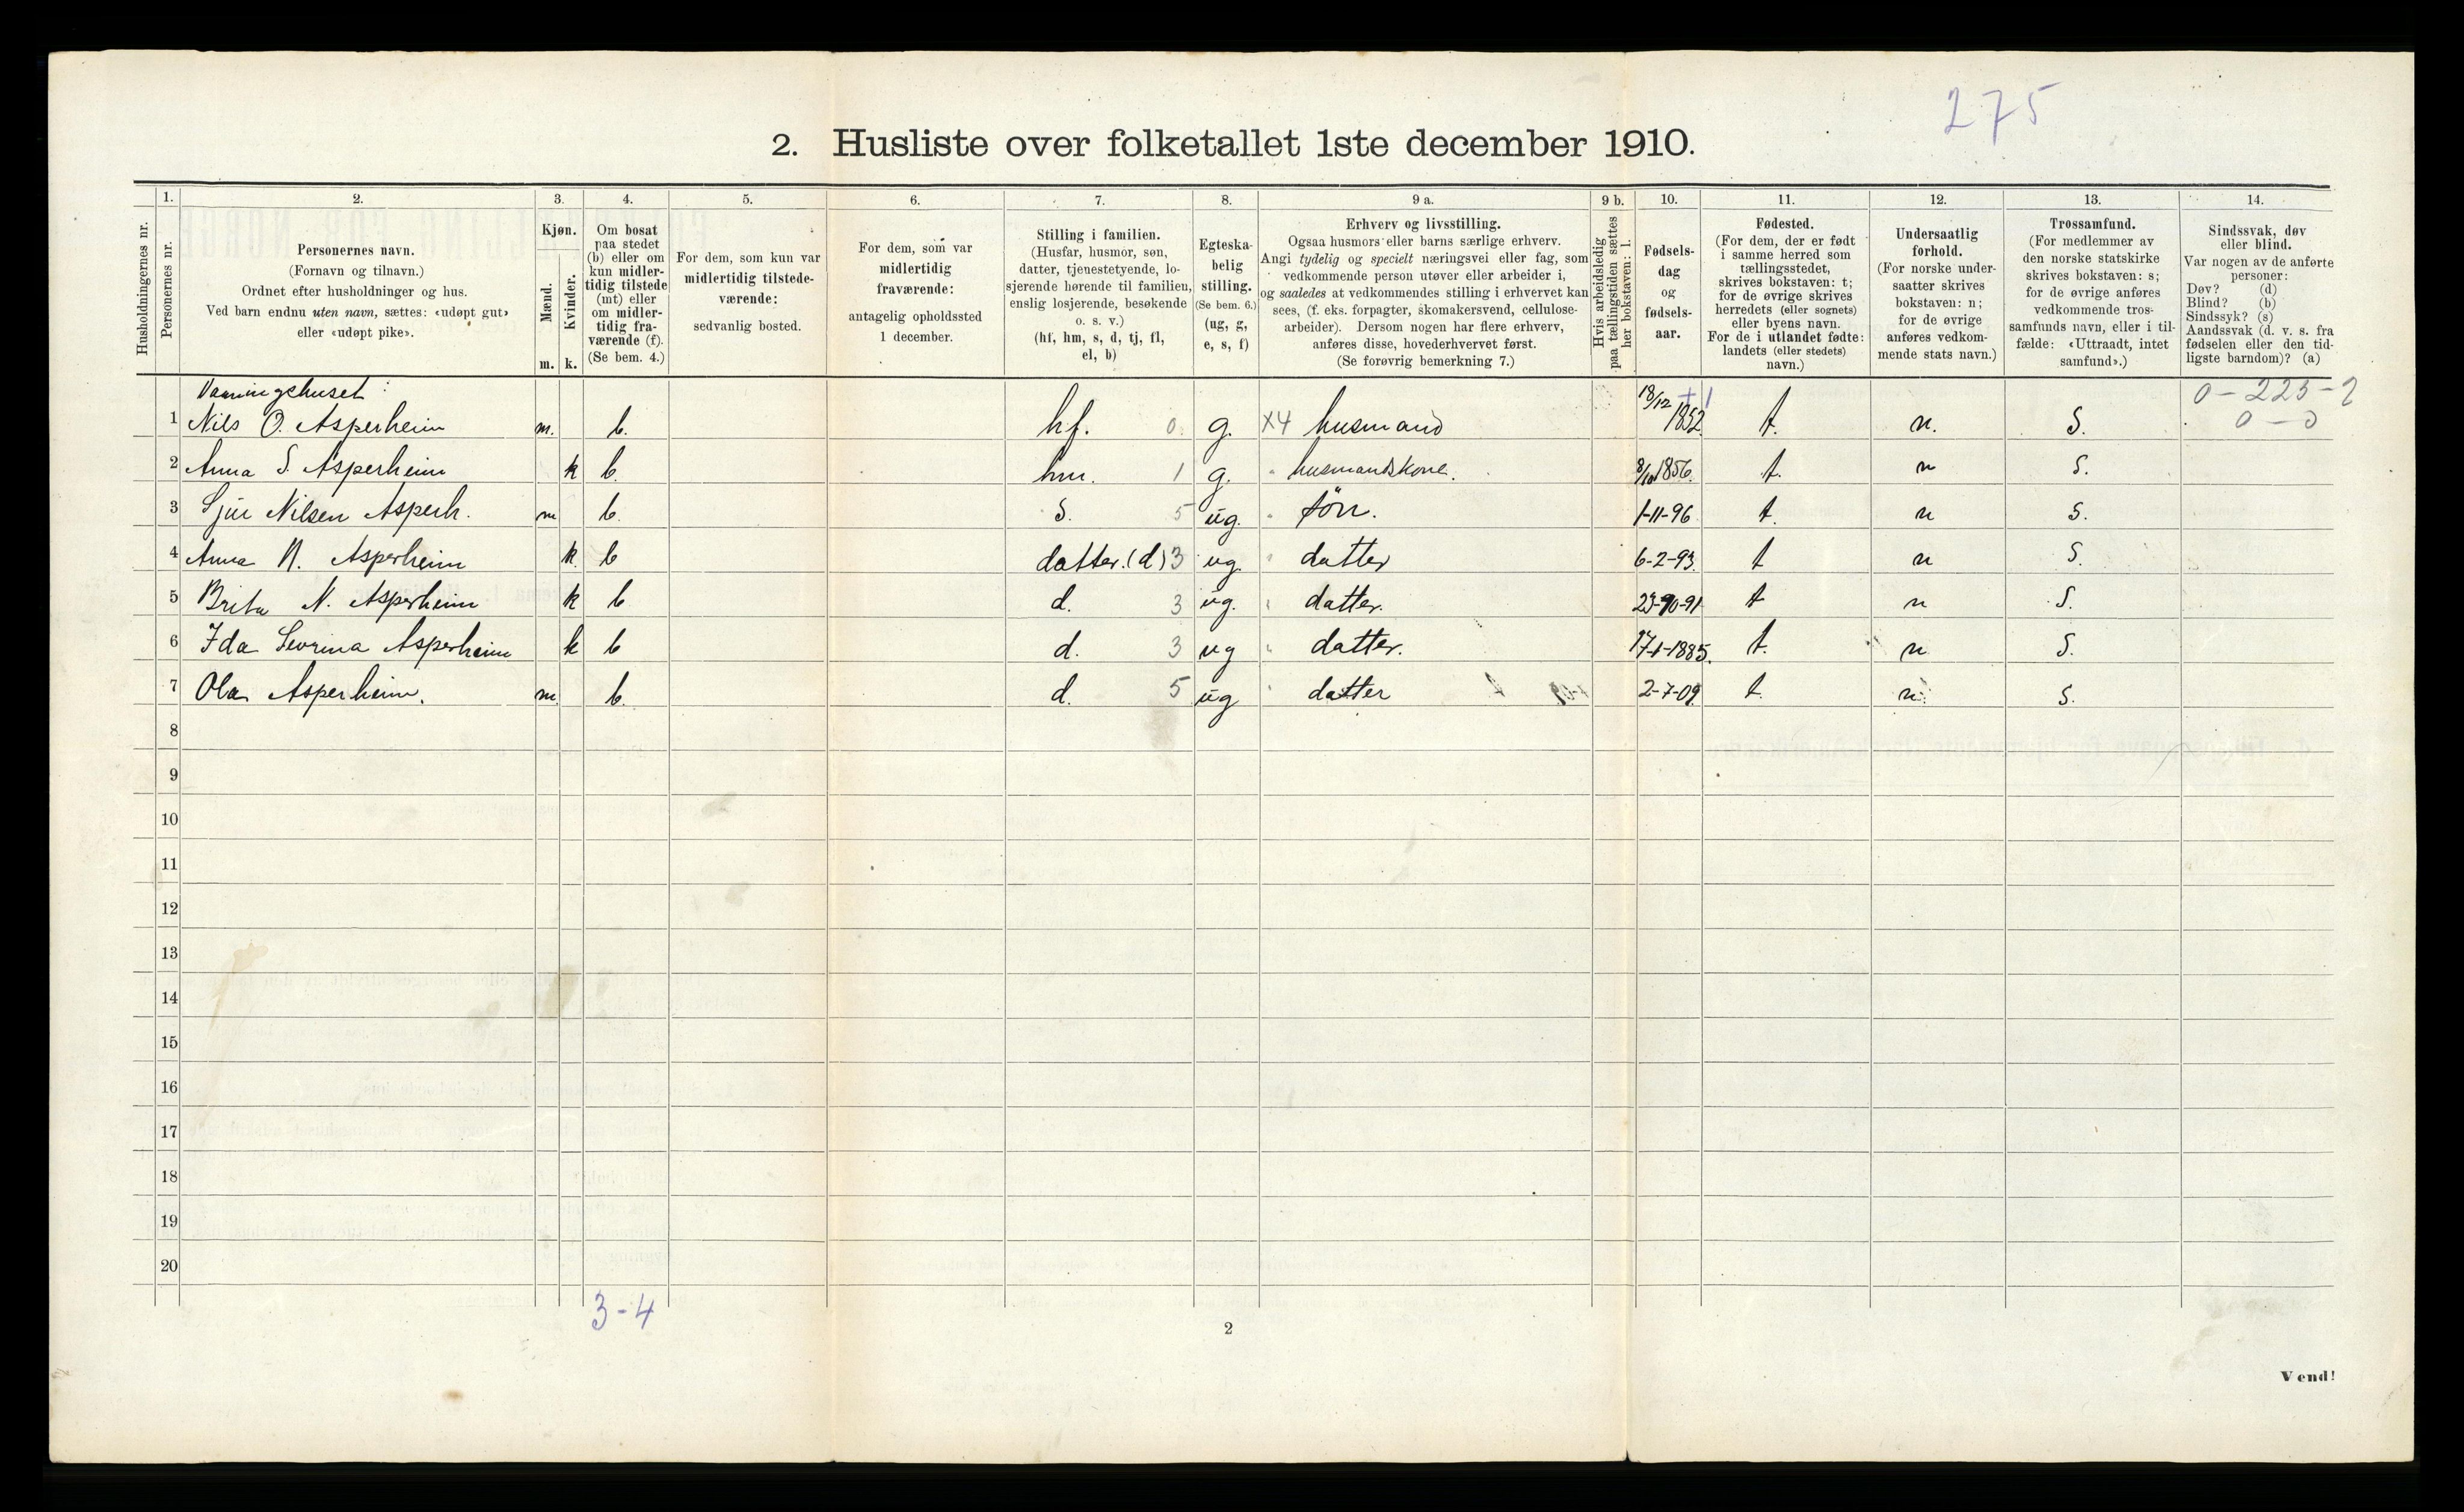 275
2. Husliste over folketallet 1ste december 1910.
Husholdningernes nr.
1. Personernes nr.
2. Personernes navn.
(Fornavn og tilnavn.)
Ordnet efter husholdninger og hus.
Ved barn endnu uten navn, sættes: «udøpt gut»
eller «udøpt pike».
3. Kjøn.
Mænd. m.
Kvinder. k.
4. Om bosat
paa stedet
(b) eller om
kun midler-
tidig tilstede
(mt) eller
om midler-
tidig fra-
værende (f).
(Se bem. 4.)
5. For dem, som kun var
midlertidig tilstede-
værende:
sedvanlig bosted.
6. For dem, som var
midlertidig
fraværende:
antagelig opholdssted
1 december.
7. Stilling i familien.
(Husfar, husmor, søn,
datter, tjenestetyende, lo-
sjerende hørende til familien,
enslig losjerende, besøkende
o. s. v.)
(hf, hm, s, d, tj, fl,
el, b)
8. Egteska-
belig
stilling.
(Se bem. 6.)
(ug, g,
e, s, f)
9 a. Erhverv og livsstilling.
Ogsaa husmors eller barns særlige erhverv.
Angi tydelig og specielt næringsvei eller fag, som
vedkommende person utøver eller arbeider i,
og saaledes at vedkommendes stilling i erhvervet kan
sees, (f. eks. forpagter, skomakersvend, cellulose-
arbeider). Dersom nogen har flere erhverv,
anføres disse, hovederhvervet først.
(Se forøvrig bemerkning 7.)
9 b. Hvis arbeidsledig
paa tællingstiden sættes
her bokstaven: l.
10. Fødsels-
dag
og
fødsels-
aar.
11. Fødested.
(For dem, der er født
i samme herred som
tællingsstedet,
skrives bokstaven: t;
for de øvrige skrives
herredets (eller sognets)
eller byens navn.
For de i utlandet fødte:
landets (eller stedets)
navn.)
12. Undersaatlig
forhold.
(For norske under-
saatter skrives
bokstaven: n;
for de øvrige
anføres vedkom-
mende stats navn.)
13. Trossamfund.
(For medlemmer av
den norske statskirke
skrives bokstaven: s;
for de øvrige anføres
vedkommende tros-
samfunds navn, eller i til-
fælde: «Uttraadt, intet
samfund».)
14. Sindssvak, døv
eller blind.
Var nogen av de anførte
personer:
Døv? (d)
Blind? (b)
Sindssyk? (s)
Aandssvak (d. v. s. fra
fødselen eller den tid-
ligste barndom)? (a)
Vaaningshuset: 0-225-2
1 Nils O. Asperheim m. b. hf. 0. g. X4 husmand 18/12 1852 t. n. S. 0-0
2 Anna S. Asperheim k b. hm. 1 g. " husmandskone. 8/10 1856. t. n S.
3 Sjur Nilsen Asperh. m b. S. 5 ug. " sön. 1-11-96 t. n S.
4 Anna N. Asperheim k. b datter. (d) 3 ug. " datter 6-2-93. t n S.
5 Brita N. Asperheim k b d. 3 ug. " datter. 23-10-91 t n S.
6 Ida Sevrina Asperheim k b d. 3 ug " datter. 17-1-1885. t. n S.
7 Ola Asperheim. m b. d. 5 ug " datter 2-7-09. t. n. S.
8
9
10
11
12
13
14
15
16
17
18
19
20
3-4
2
Vend!